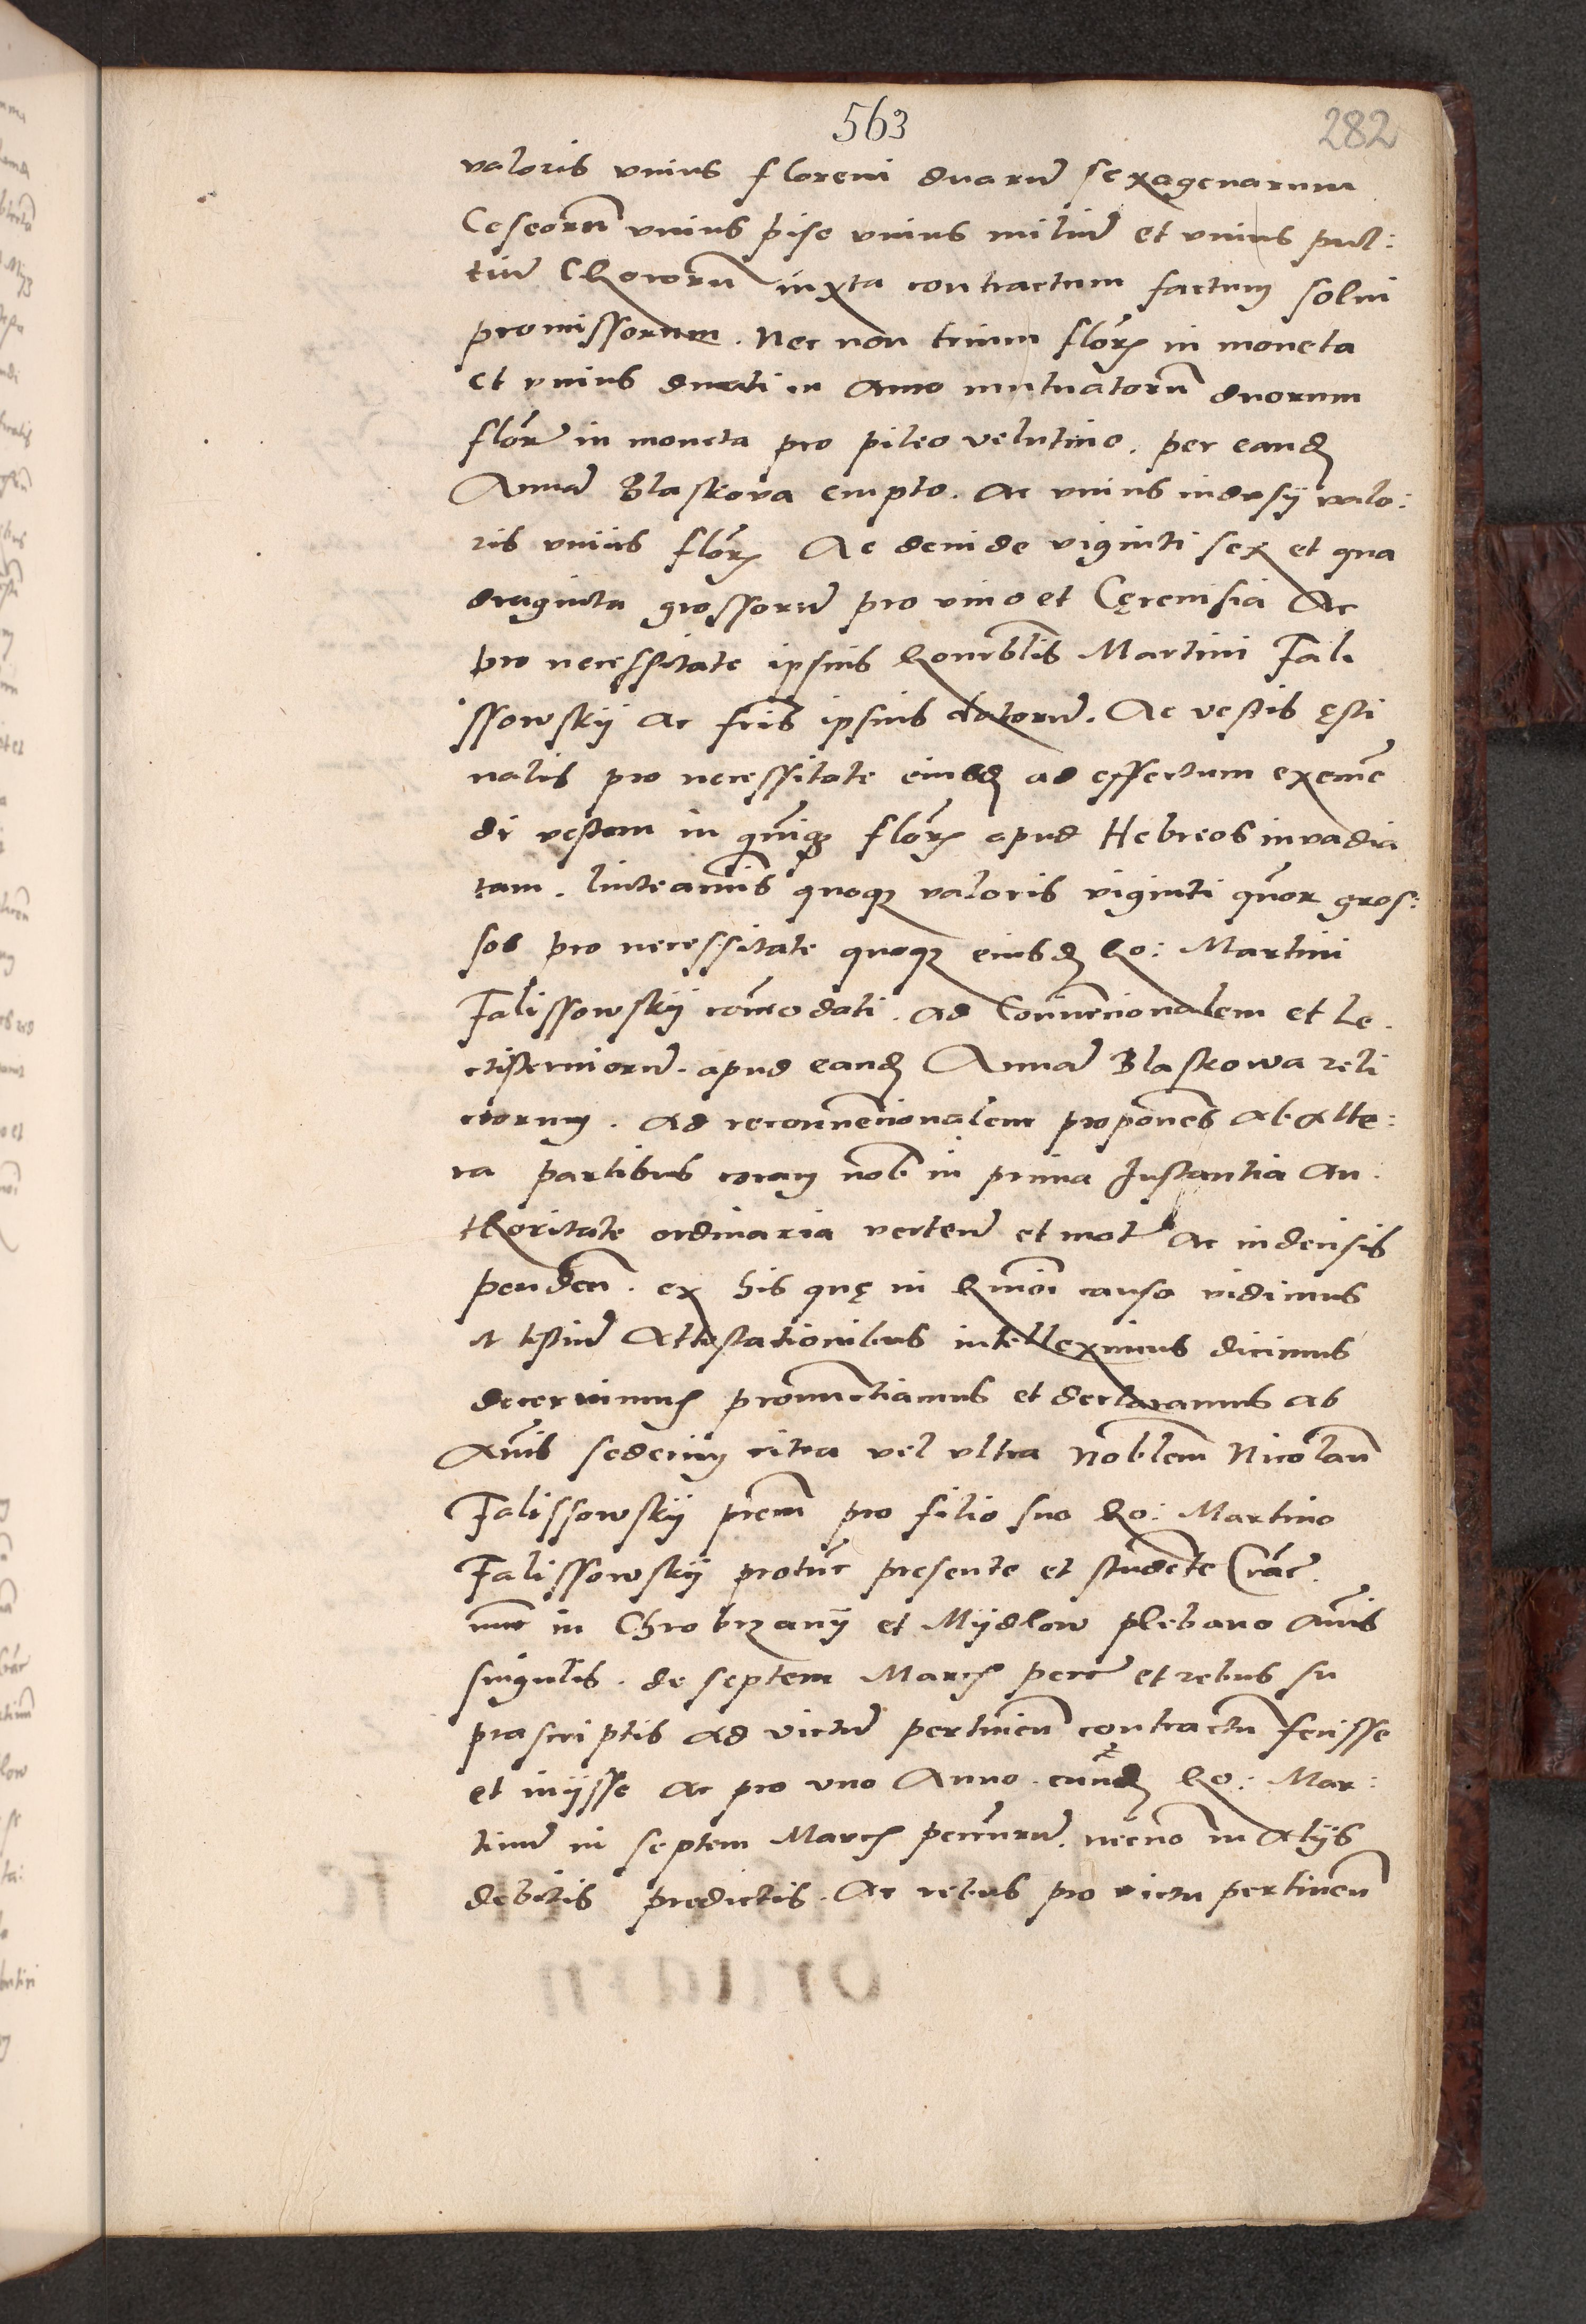 563
282
valoris vnius floreni duarum sexagenarum
Caseorũ vnius pise vnius miliũ et vnius pul:
tiũ Chororũ iuxta contractum factum solui
promissorum. Nec non trium florꝭ in moneta
et vnius ducati in auro mutuatorũ duorum
flor̃ in moneta pro pileo velutino. per eand̃
Annã Blaskova empto. Ac vnius indusij valo:
ris vnius florꝭ Ac deinde viginti sex et qua
draginta grossorũ pro vino et Cęreuisia Ac
pro necessitate ipsius honorablis Martini Fali
ssowskij ac fr̃is ipsius datorũ. Ac vestis ęsti
nalis pro necessitate eiusd̃ ad effectum exemẽ
di vestem in quinqꝫ florꝭ apud Hebreos inuadia
tam. linteaminis quoqꝫ valoris viginti quatuor gros:
sos pro necessitate quoqꝫ eiusd̃ ho: Martini
Falissowskij com̃odati. ad Conuencionalem et le.
ctisterniorũ. apud eand̃ Annã Blaskowa reli
ctorum. ad reconuencionalem proponeñ ab alte:
ra partibus coram nob̃ in prima Instantia au.
thoritate ordinaria verteñ et mot̃ ac indecisis
pendeñ. ex his quę in hmõi causa vidimus
et testiũ Attestationibus intelleximus dicimus
decernimus pronunctiamus et declaramus ab
Annis sedecim citra vel vltra Noblem Nicolaũ
Falissowskij prẽm pro filio suo ho: Martino
Falissowskij protũc presente et studẽte Crac̃.
nũc in Chobrzanij et Mijdlow plebano Añis
singulis. de septem Marcꝭ pecc̃ et rebus su
prascriptis ad victũ pertineñ contractũ fecisse
et inijsse Ac pro vno Anno. eund̃ ho: Mar:
tinũ in septem Marcꝭ pecc̃niarũ. necno in alijs
debitis predictis. Ac rebus pro victu pertineñ